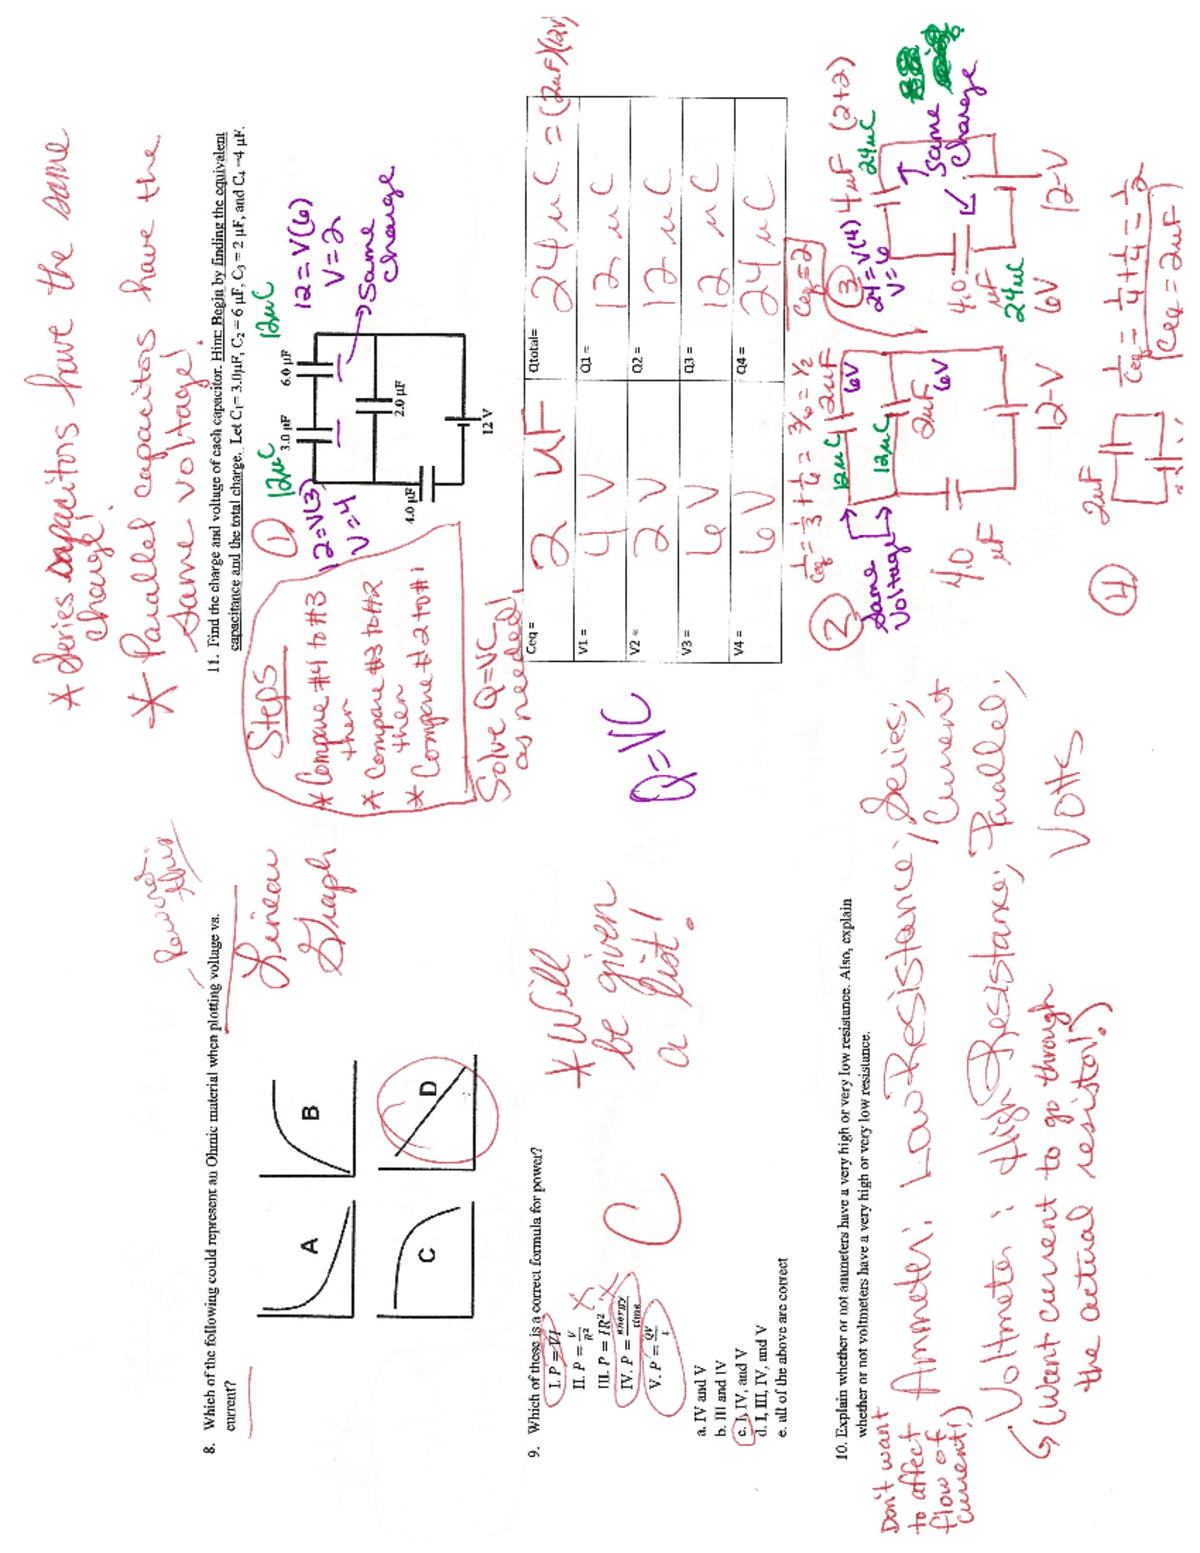 Reword this
8. Which of the following could represent an Ohmic material when plotting voltage vs.
current?
Linear
Graph
A
B
C
D
9. Which of these is a correct formula for power?
I. P = VI
II. P = V/R² X
III. P = IR² X
IV. P = energy/time
V. P = QV/t
C
* Will
be given
a list!
a. IV and V
b. III and IV
c. I, IV, and V
d. I, III, IV, and V
e. all of the above are correct
10. Explain whether or not ammeters have a very high or very low resistance. Also, explain
whether or not voltmeters have a very high or very low resistance.
Don't want
to affect
flow of
current!)
Ammeter: Low Resistance; Series;
Current
Voltmeter: High Resistance; Parallel;
Volts
(Want current to go through
the actual resistor!)
* Series capacitors have the same
charge!
* Parallel capacitors have the
same voltage!
11. Find the charge and voltage of each capacitor. Hint: Begin by finding the equivalent
capacitance and the total charge. Let C₁= 3.0μF, C₂ = 6 μF, C₃ = 2 μF, and C₄ =4 μF.
Steps
* Compare #4 to #3
then
* Compare #3 to #2
then
* Compare #2 to #1
Solve Q=VC
as needed!
1
12μC
12μC
3.0 μF
6.0 μF
12=V(3)
V=4
12=V(6)
V=2
Same
charge
2.0 μF
4.0 μF
12 V
Q=VC
Ceq = 2 μF
Qtotal= 24 μC = (2μF)(12V)
V1 = 4 V
Q1 = 12 μC
V2 = 2 V
Q2 = 12 μC
V3 = 6 V
Q3 = 12 μC
V4 = 6 V
Q4 = 24 μC
2
1/Ceq = 1/3 + 1/6 = 3/6 = 1/2
Ceq = 2
Same
Voltage
12μC
2μF
6V
12μC
2μF
6V
4.0
μF
12-V
3
4μF (2+2)
24=V(4)
V=6
24μC
Same
Charge
4.0
μF
24μC
6V
12-V
4
2μF
1/Ceq = 1/4 + 1/4 = 1/2
Ceq = 2μF